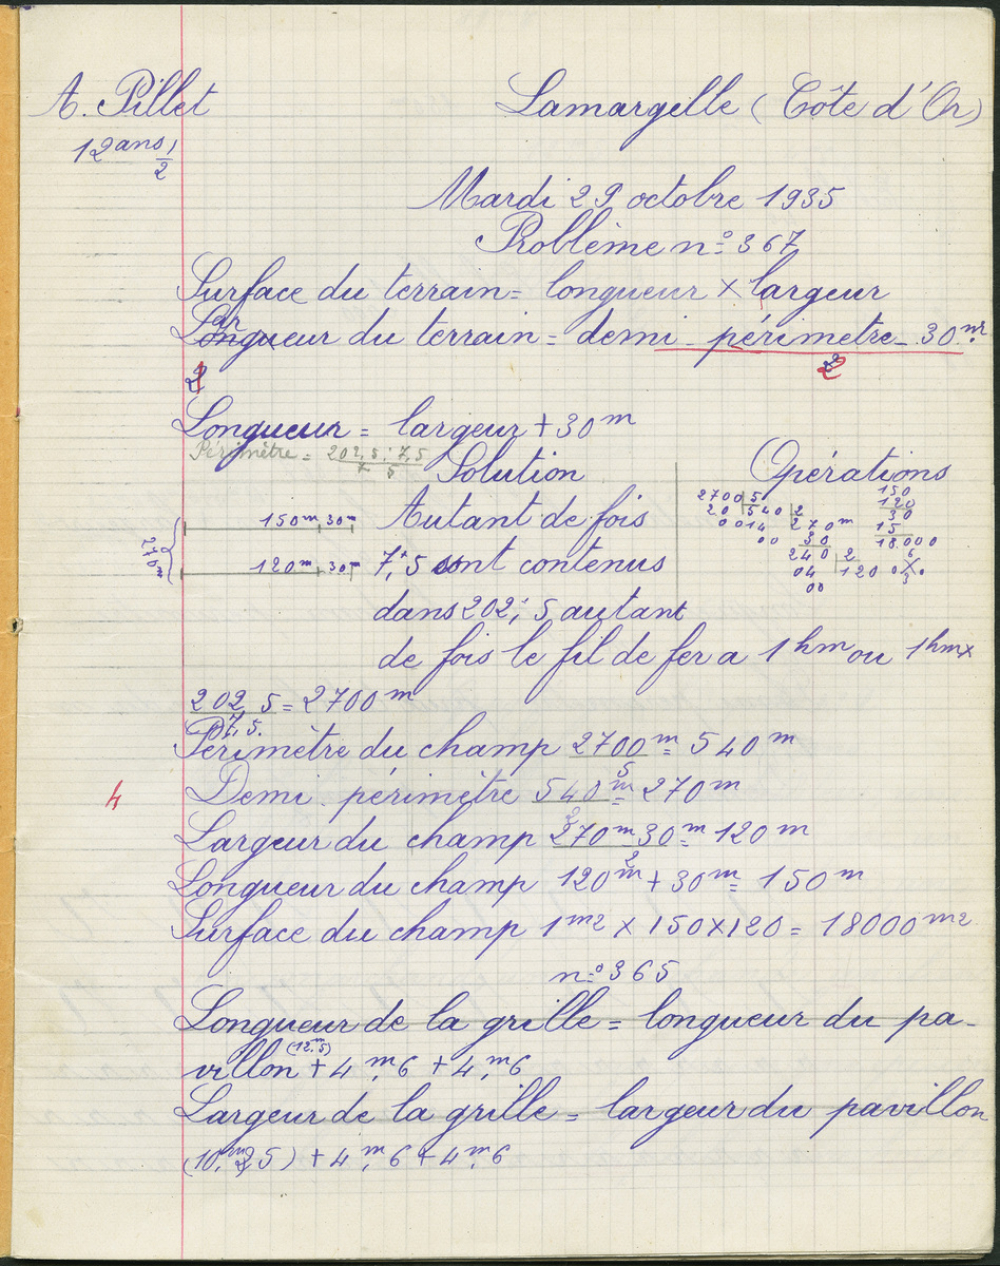 A. Pillet
Lamargelle (Côte d'Or)
12 ans 1/2
Mardi 29 octobre 1935
Problème n° 367
Surface du terrain = longueur × largeur
Largueur du terrain = demi-périmètre - 30 m
2
2
Longueur = largeur + 30 m
Périmètre = 202,5 : 7,5
5
Solution
Opérations
150 m 30 m
120 m 30 m
270 m
Autant de fois
7,5 sont contenus
dans 202,5 autant
de fois le fil de fer a 1 hm ou 1 hm ×
2700 5
20 540 2
270 m
30
240 2
04 120
00
150
120
30
15
18.000
202,5 = 2700 m
7,5
Périmètre du champ 2700 m = 540 m
5
4
Demi-périmètre 540 m = 270 m
2
Largeur du champ 270 m - 30 m = 120 m
2
Longueur du champ 120 m + 30 m = 150 m
Surface du champ 1 m2 × 150 × 120 = 18000 m2
n° 365
Longueur de la grille = longueur du pa-
(12,5)
villon + 4 m,6 + 4 m,6
Largeur de la grille = largeur du pavillon
(10 m,25) + 4 m,6 + 4 m,6